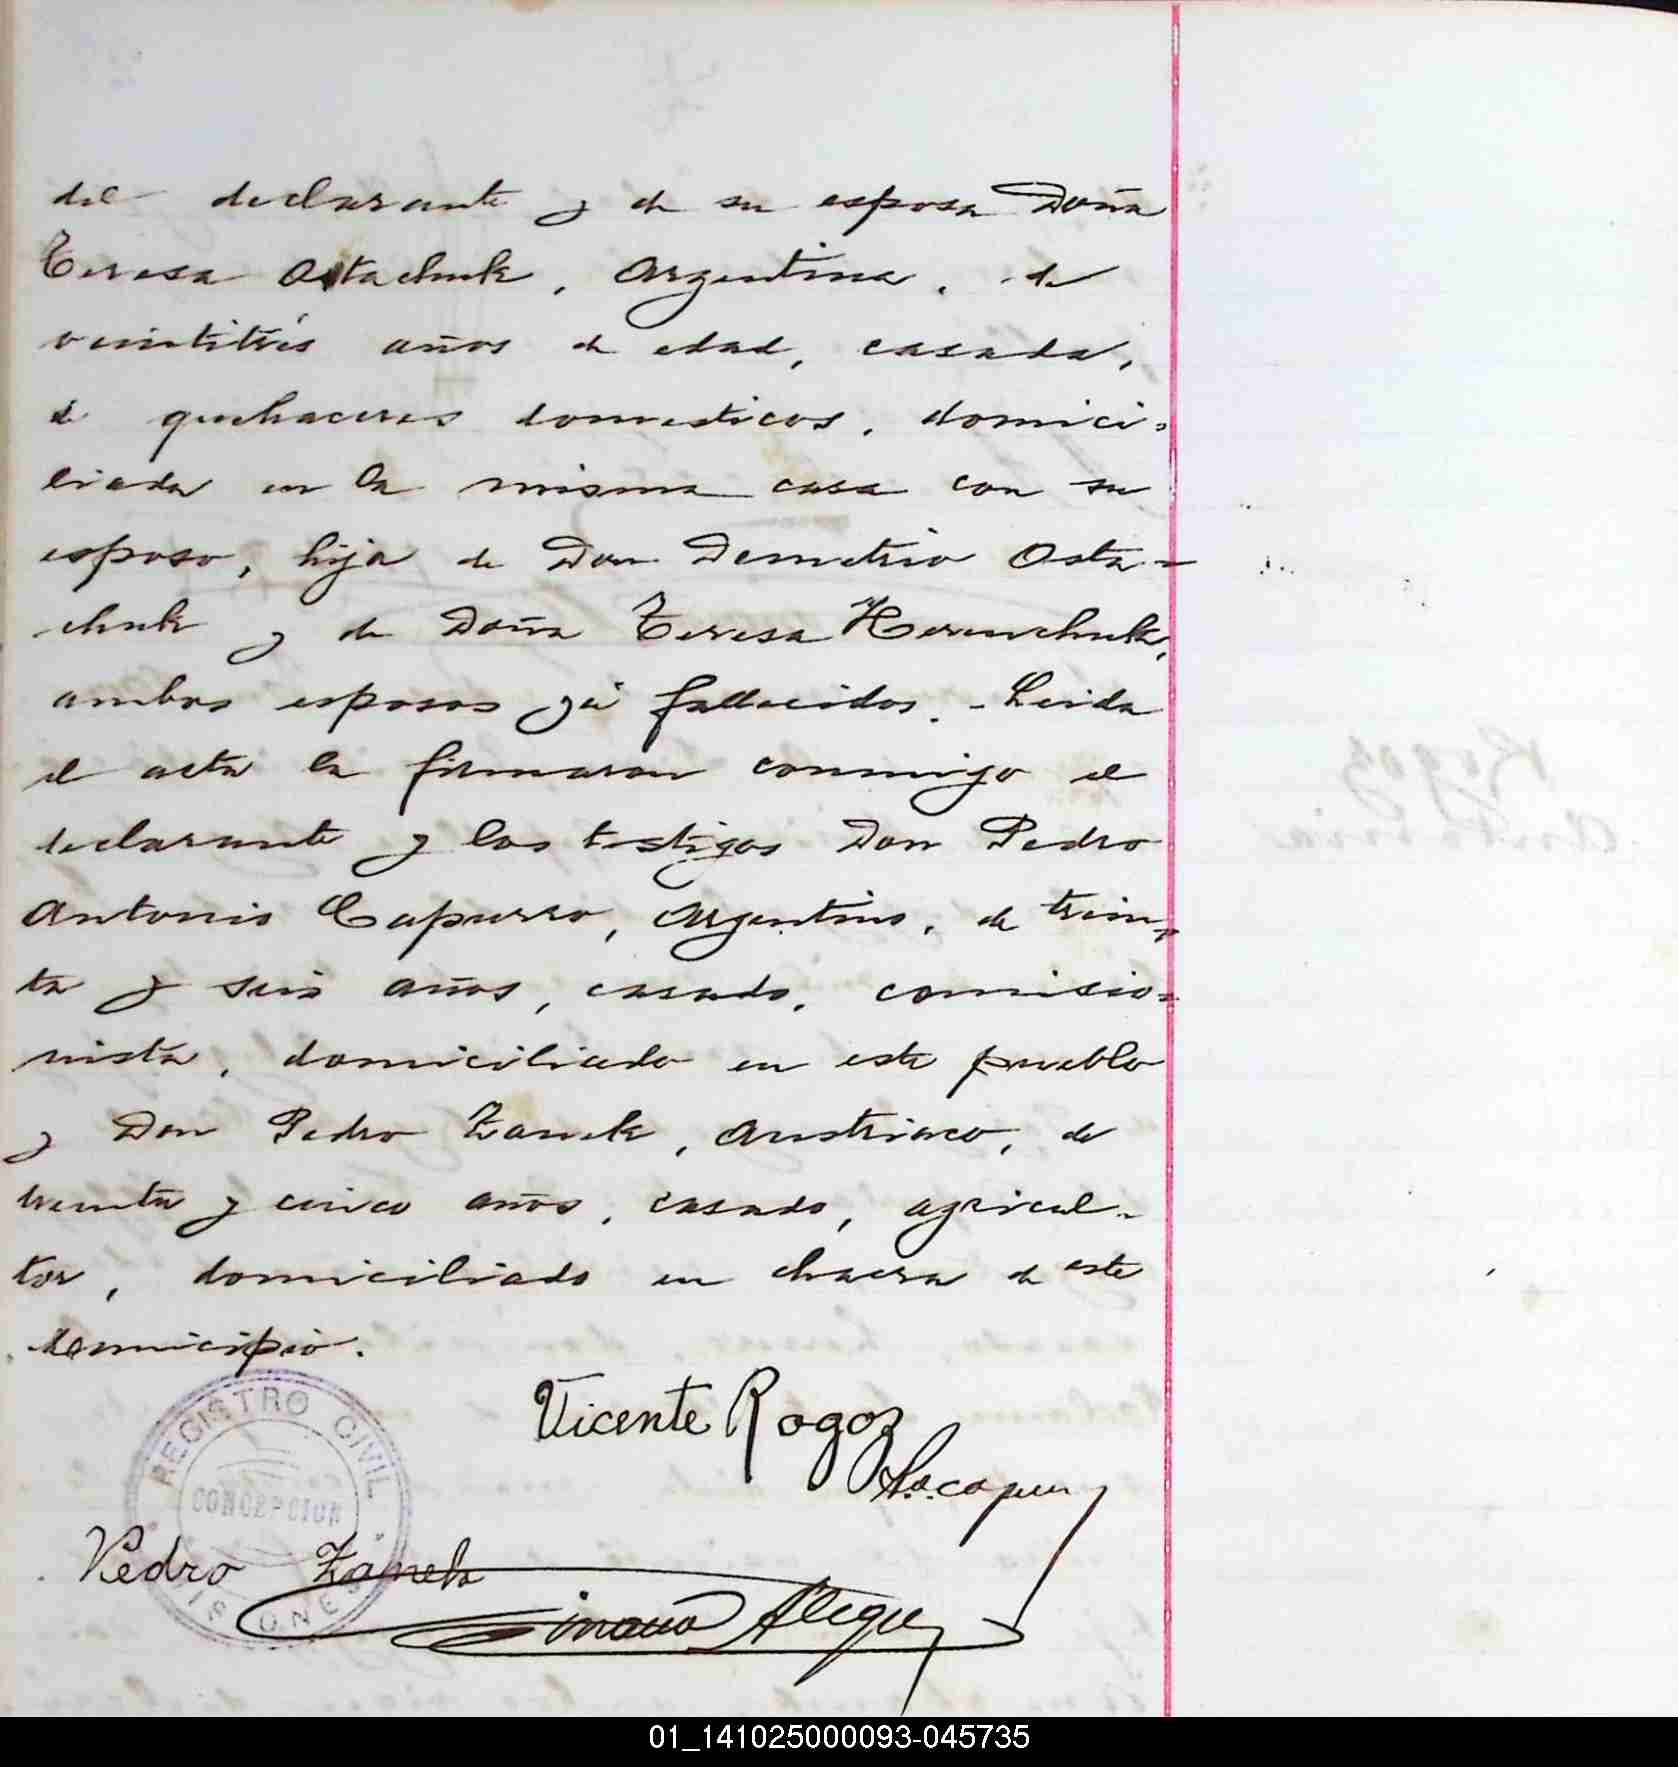 del declarante y de su esposa Doña
Teresa Ostachuk, Argentina, de
veintitrés años de edad, casada,
de quehaceres domesticos, domici-
liada en la misma casa con su
esposo, hija de Don Demetrio Osta-
chuk y de Doña Teresa
ambos esposos ya fallecidos. - Leida
el acta la firmaron conmigo el
declarante y los testigos Don Pedro
Antonio Capurro, Argentino, de trein-
ta y seis años, casado, comisio-
nista, domiciliado en este pueblo
y Don Pedro Zanek, Austriaco, de
treinta y cinco años, casado, agricul-
tor, domiciliado en chacra de este
municipio.
Vicente Rogoz
Pedro Zanek
REGISTRO CIVIL
CONCEPCION
MISIONES
Rogoz
Antonia
01_141025000093-045735